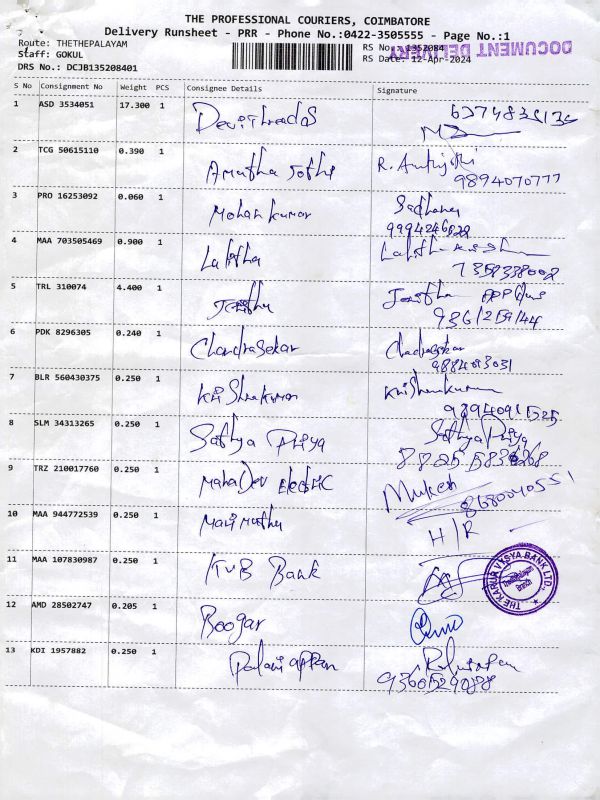 THE PROFESSIONAL COURIERS, COIMBATORE
Delivery Runsheet - PRR - Phone No.:0422-3505555 - Page No.:1
Route: THETHEPALAYAM
Staff: GOKUL
DRS No.: DCJB135208401
RS No.: 1352084
RS Date: 12-Apr-2024
DOCUMENT DELIVERY
S No Consignment No Weight PCS Consignee Details Signature
1 ASD 3534051 17.300 1
2 TCG 50615110 0.390 1 Amutha Jothi
9894070777
3 PRO 16253092 0.060 1 Mohan kumar Sadhana
9994246828
4 MAA 703505469 0.900 1 Lalitha
7358338002
5 TRL 310074 4.400 1
6 PDK 8296305 0.240 1 Chandrasekar Chadrasekar
7 BLR 560430375 0.250 1 KriShnakumar Krishnakumar
8 SLM 34313265 0.250 1 Sathya Priya Sathya Priya
9 TRZ 210017760 0.250 1 MahaDev Electric Mukesh
8680040551
10 MAA 944772539 0.250 1 Mari muthu H/R
11 MAA 107830987 0.250 1 KVB Bank
THE KARUR VYSYA BANK LTD.
Thethipalayam
Branch
12 AMD 28502747 0.205 1 Boogar
13 KDI 1957882 0.250 1 Palani appan